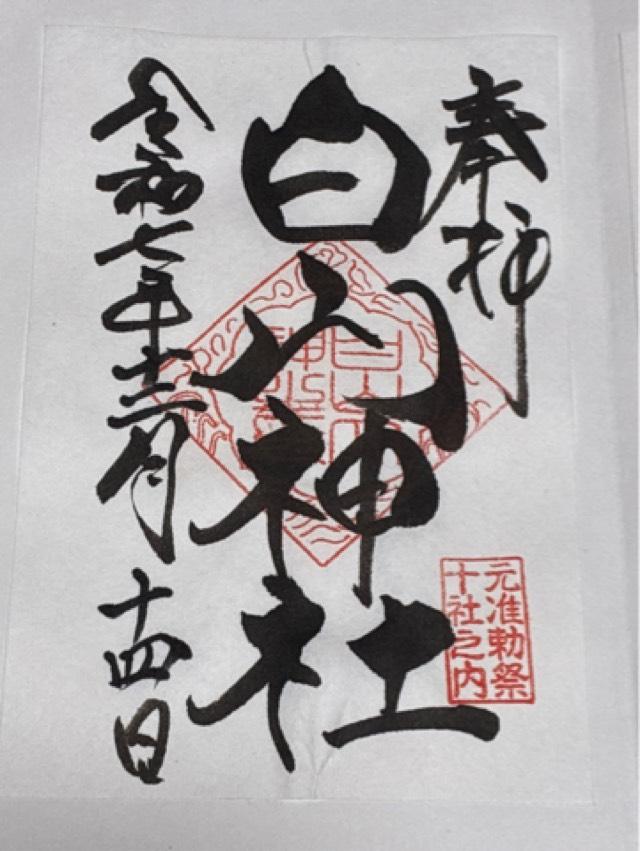 奉拝
白山神社
元准勅祭
十社之内
令和七年十二月十四日